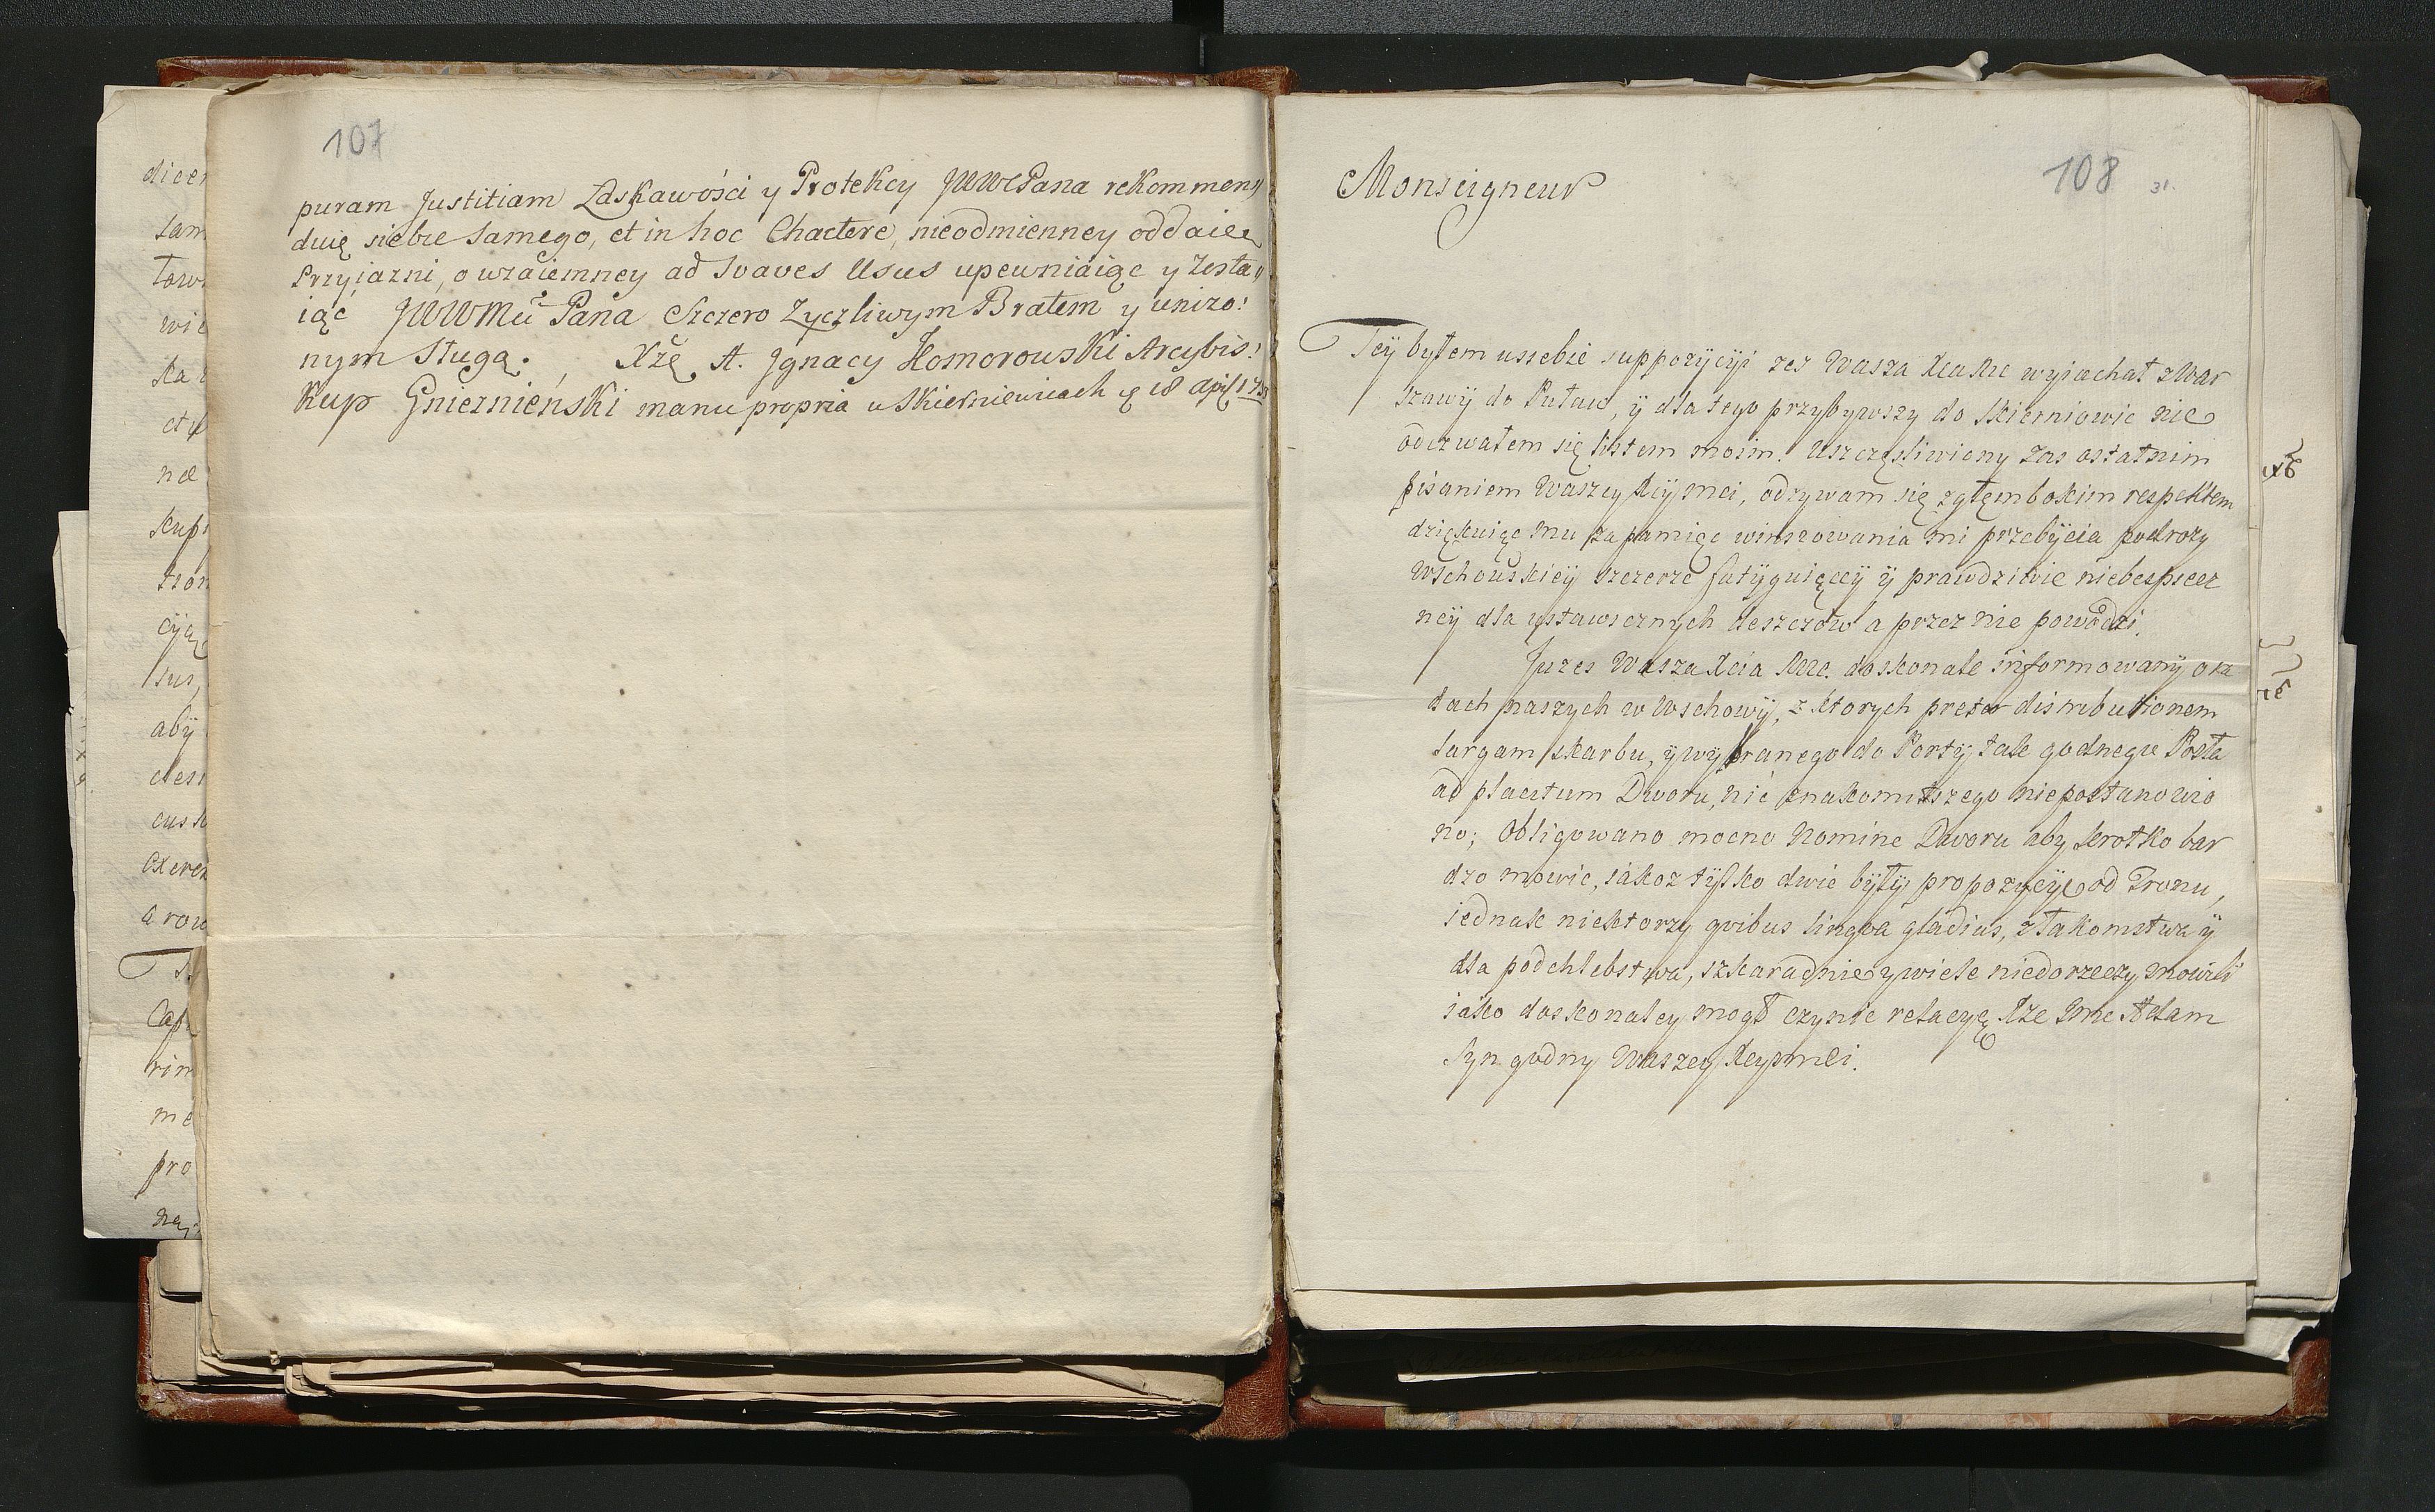 107
puram Justitiam Łaskawości y Protekcy JWWPana rekommen,,
duię siebie samego, et in hoc Chactere, nieodmienney oddaię
Przyiazni, o wzaiemney ad Suaves Usus upewniaiąc y zosta,,
iąc JWWMu Pana Szczero Zyczliwym Bratem y unizo:
nym Sługą. Xżę A. Jgnacy Komorowski Arcybis:
kup Gnieznieński manu propria w Skierniewicach 18 April
108
31.
Monseigneur
Tey byłem u siebie suppozycyi zes Wasza Xca Mc wyiachał z War
szawÿ do Puław, ÿ dla tego przybywszy do Skierniowic nie
odezwałem się listem moim. Uszczęsliwiony zas ostatnim
pisaniem Waszey Xcÿ mci, odzywam się z głęmbokim respektem
dziękuiąc mu za pamięc winszowania mi przebÿcia podrozy
Wschowskieÿ szczerze fatÿguiąceÿ ÿ prawdziwie niebespiecz
neÿ dla ustawicznych deszczow a przez nie powodzi.
Juzes Wasza Xcia Mc. doskonale informowanÿ o ra
dach naszych w Wschowÿ, z ktorych preter distributionem
largam skarbu, ÿ wÿbranego do Portÿ tak godnego Posła
ad placitum Dworu, nic znakomitszego niepostanowio
no; Obligowano mocno Nomine Dworu aby krotko bar
dzo mowic, iakoz tÿlko dwie bÿłÿ propozycÿe od Tronu,
iednak niektorzy qvibus lingva gladius, z łakomstwa ÿ
dla podchlebstwa, szkaradnie y wiele niedorzeczy mowili
iako doskonaley mogł czynic relacyę Xże Jmc Adam
Syn godny Waszey Xcy mci.